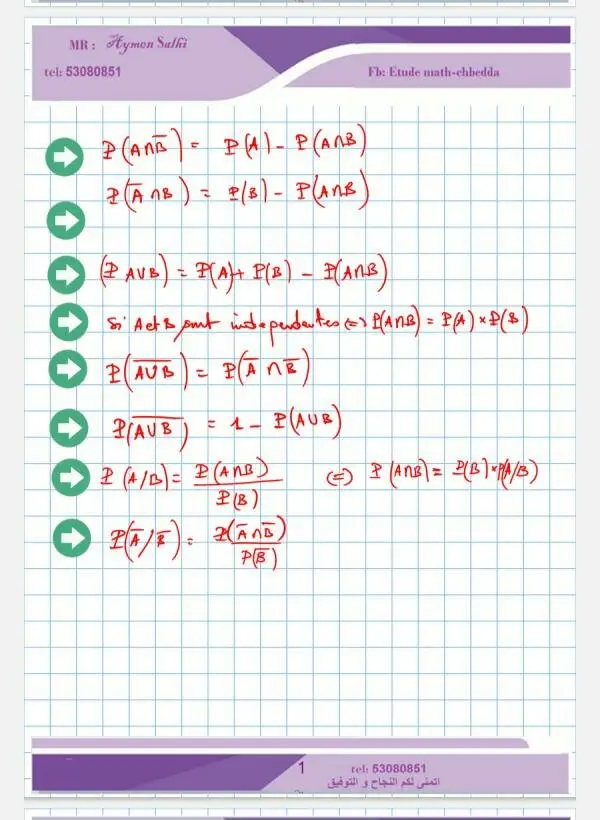 MR : Aymon Salhi
tel: 53080851
Fb: Etude math-chbedda
P(A∩B̅) = P(A) - P(A∩B)
P(A̅∩B) = P(B) - P(A∩B)
(P A∪B) = P(A) + P(B) - P(A∩B)
Si A et B sont independantes (=) P(A∩B) = P(A) × P(B)
P(A̅∪̅B̅) = P(A̅ ∩ B̅)
P(A̅∪̅B̅) = 1 - P(A∪B)
P(A/B) = P(A∩B) / P(B) (=) P(A∩B) = P(B) × P(A/B)
P(A̅/B̅) = P(A̅∩B̅) / P(B̅)
1
tel: 53080851
اتمنى لكم النجاح و التوفيق